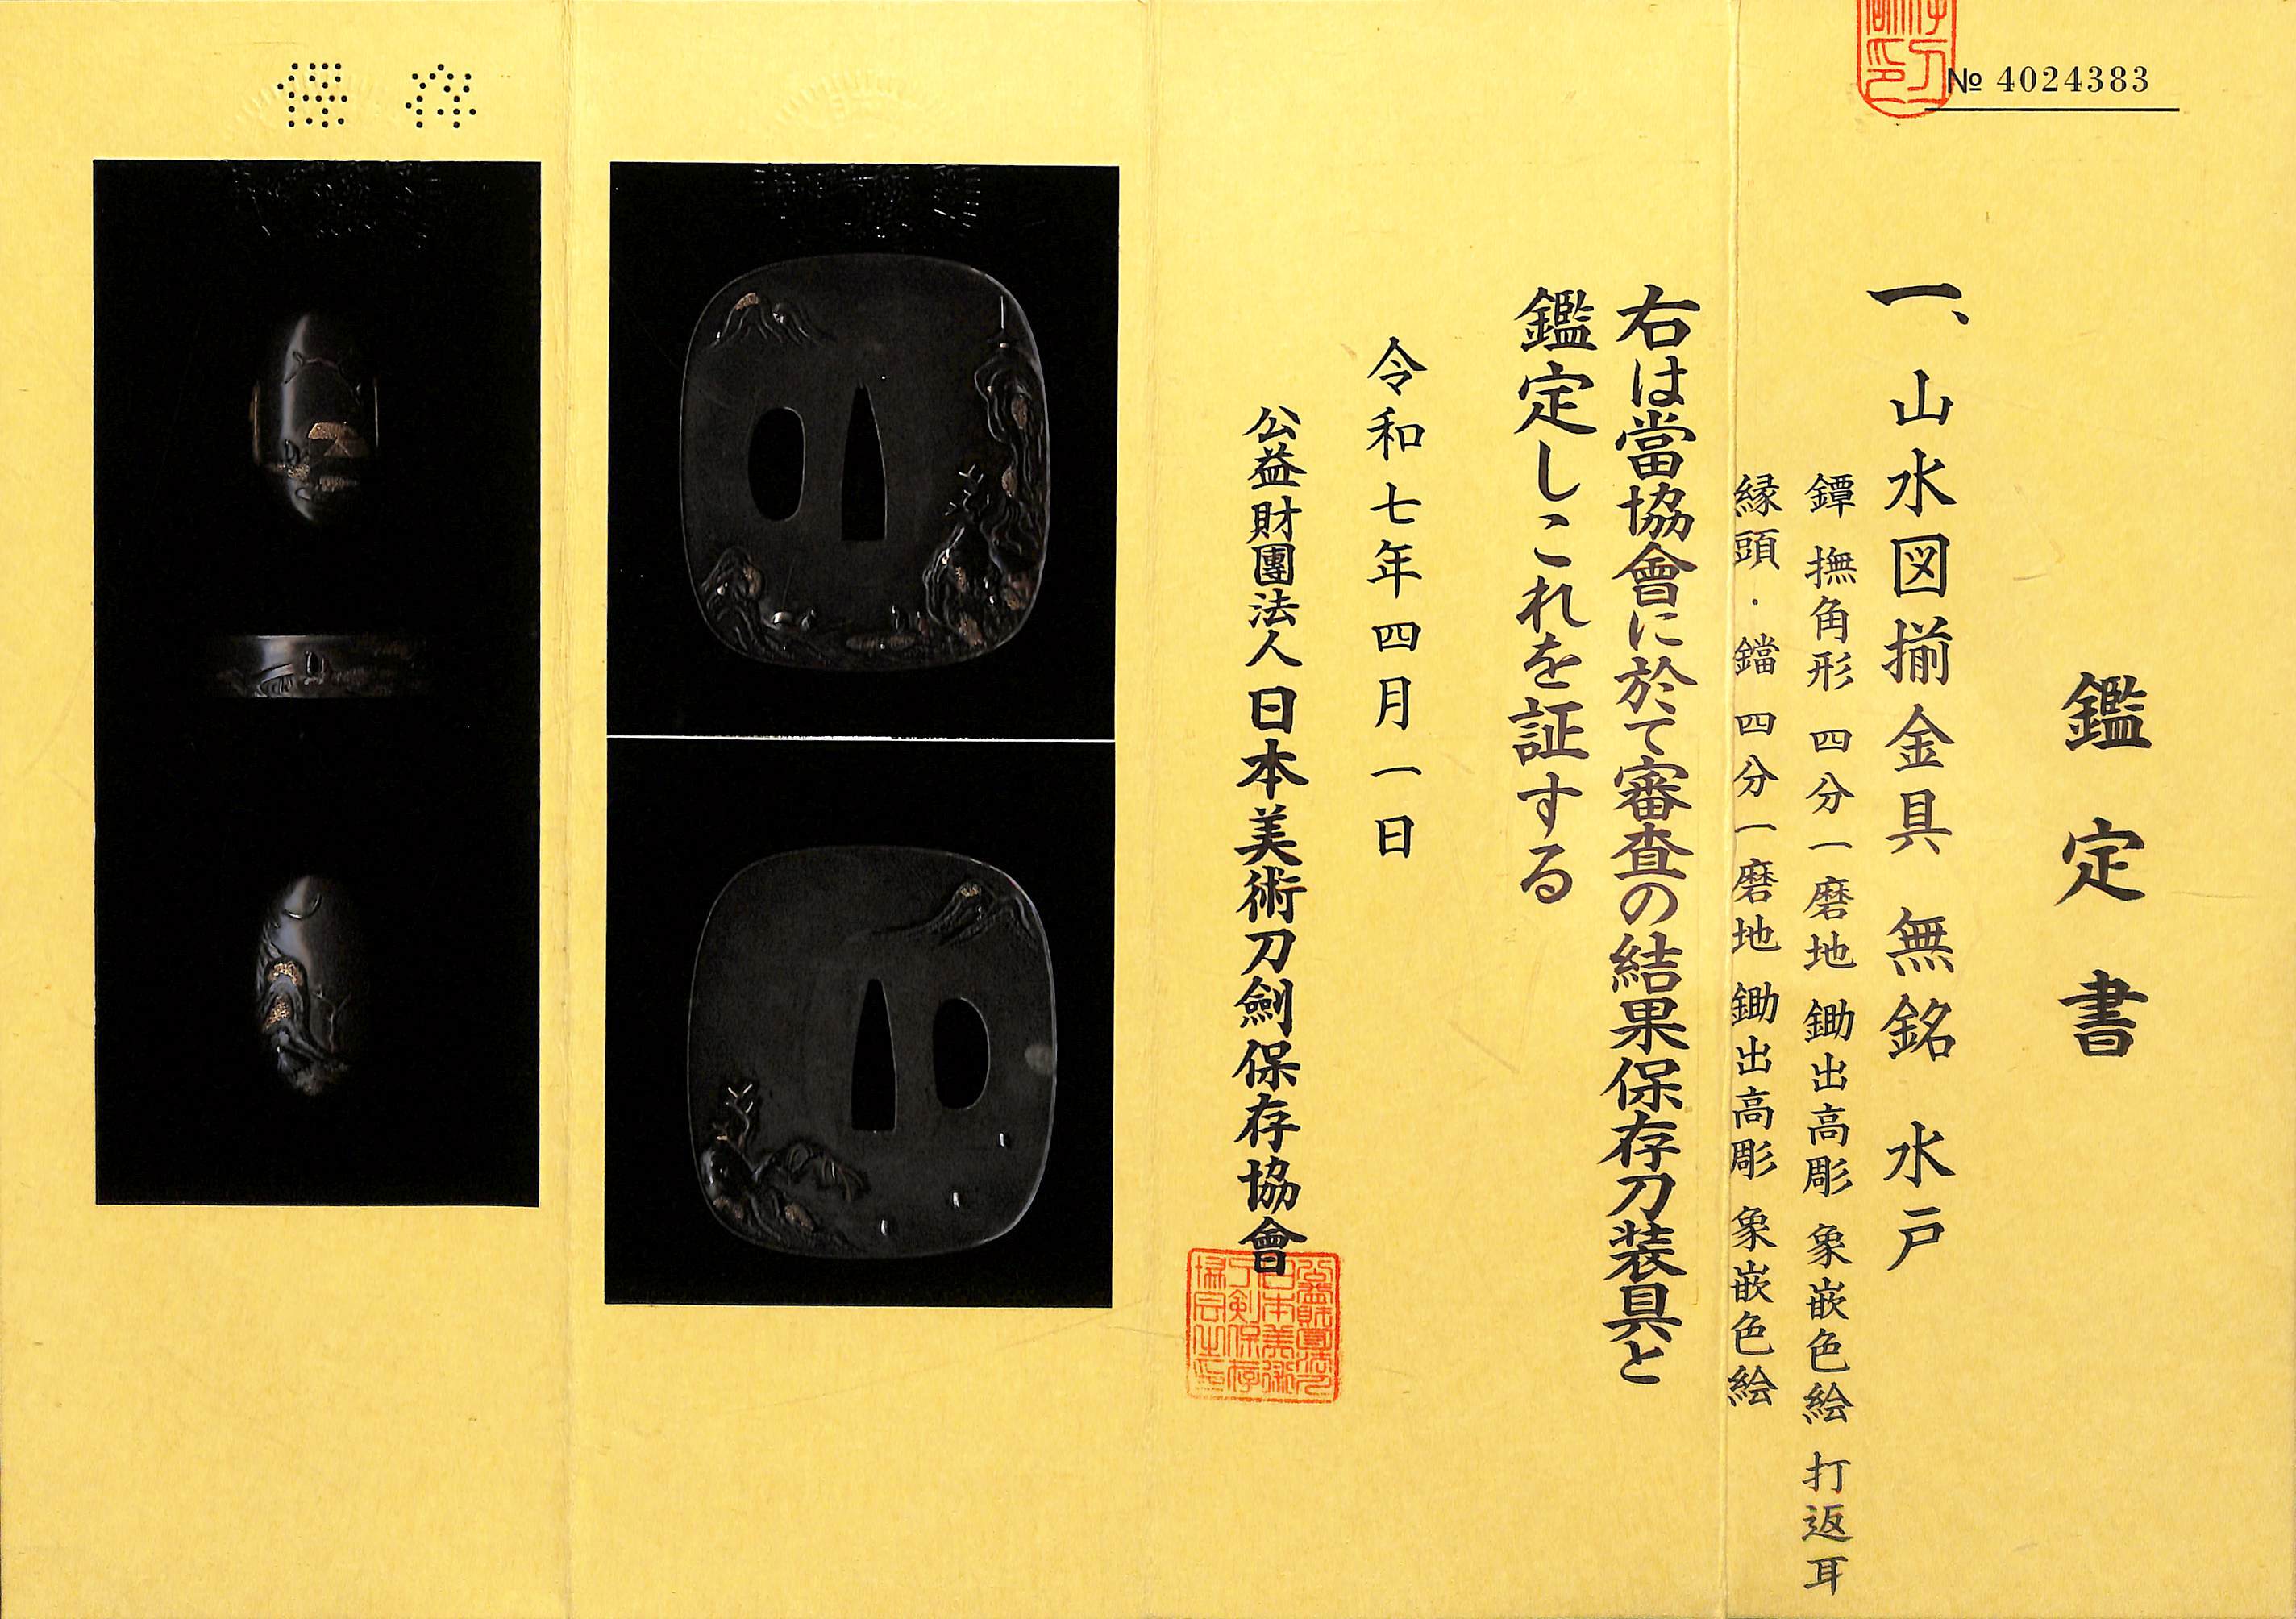 № 4024383
鑑定書
一、山水図揃金具 無銘 水戸
鐔 撫角形 四分一磨地 鋤出高彫 象嵌色絵 打返耳
縁頭・鐺 四分一磨地 鋤出高彫 象嵌色絵
右は當協會に於て審査の結果保存刀装具と
鑑定しこれを証する
令和七年四月一日
公益財團法人 日本美術刀劍保存協會
保存